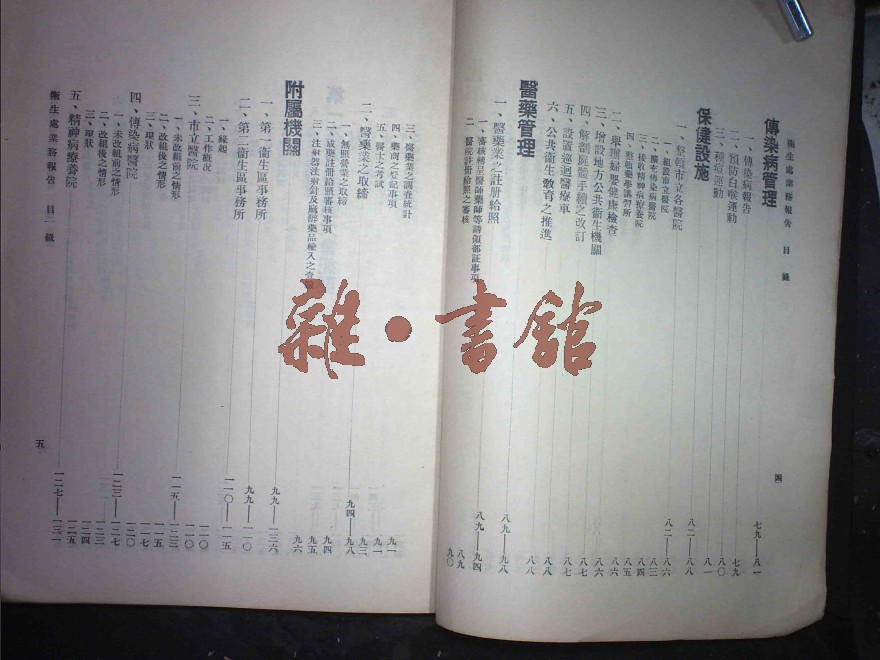 衞生處業務報告 目錄
四
傳染病管理 七九—八一
一、傳染病報告 七九
二、預防白喉運動 八〇
三、種痘運動 八一
保健設施 八二—八八
一、整頓市立各醫院 八二—八六
一、組設市立醫院
二、擴充傳染病醫院 八三
三、接收精神病療養院 八四
四、整頓藥學講習所 八五
二、舉辦婦嬰健康檢查 八六
三、增設地方公共衞生機關 八六
四、解剖屍體手續之改訂 八七
五、設置巡迴醫療車 八七
六、公共衞生教育之推進 八八
醫藥管理 八九—九八
一、醫藥業之註册給照 八九—九四
一、審核轉呈醫師藥師等請領部証事項 八九
二、醫院註册給照之審核 九〇
三、醫藥業之調查統計 九一
四、藥商之登記事項 九一
五、醫士之考試 九三
二、醫藥業之取締 九四—九八
一、無照營業之取締
二、成藥註册給照審核事項 九四
三、注射器注射針及麻醉藥品輸入之查 九五
九六
附屬機關 九九—一三六
一、第一衞生區事務所 九九—一一〇
二、第二衞生區事務所 一一〇—一一五
一、緣起 一一〇
二、工作概况 一一〇
三、市立醫院 一一五—一二三
一、未改組前之情形 一一五
二、改組後之情形 一一七
三、現狀 一二〇
四、傳染病醫院 一二三—一二七
一、未改組前之情形 一二三
二、改組後之情形 一二四
三、現狀 一二五
五、精神病療養院 一二七—一三一
衞生處業務報告 目錄
五
雜•書館